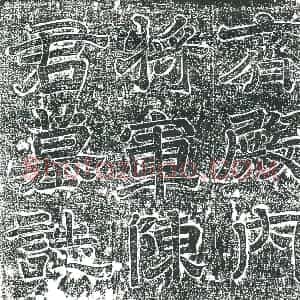 齊殿內
將軍陳
君墓誌